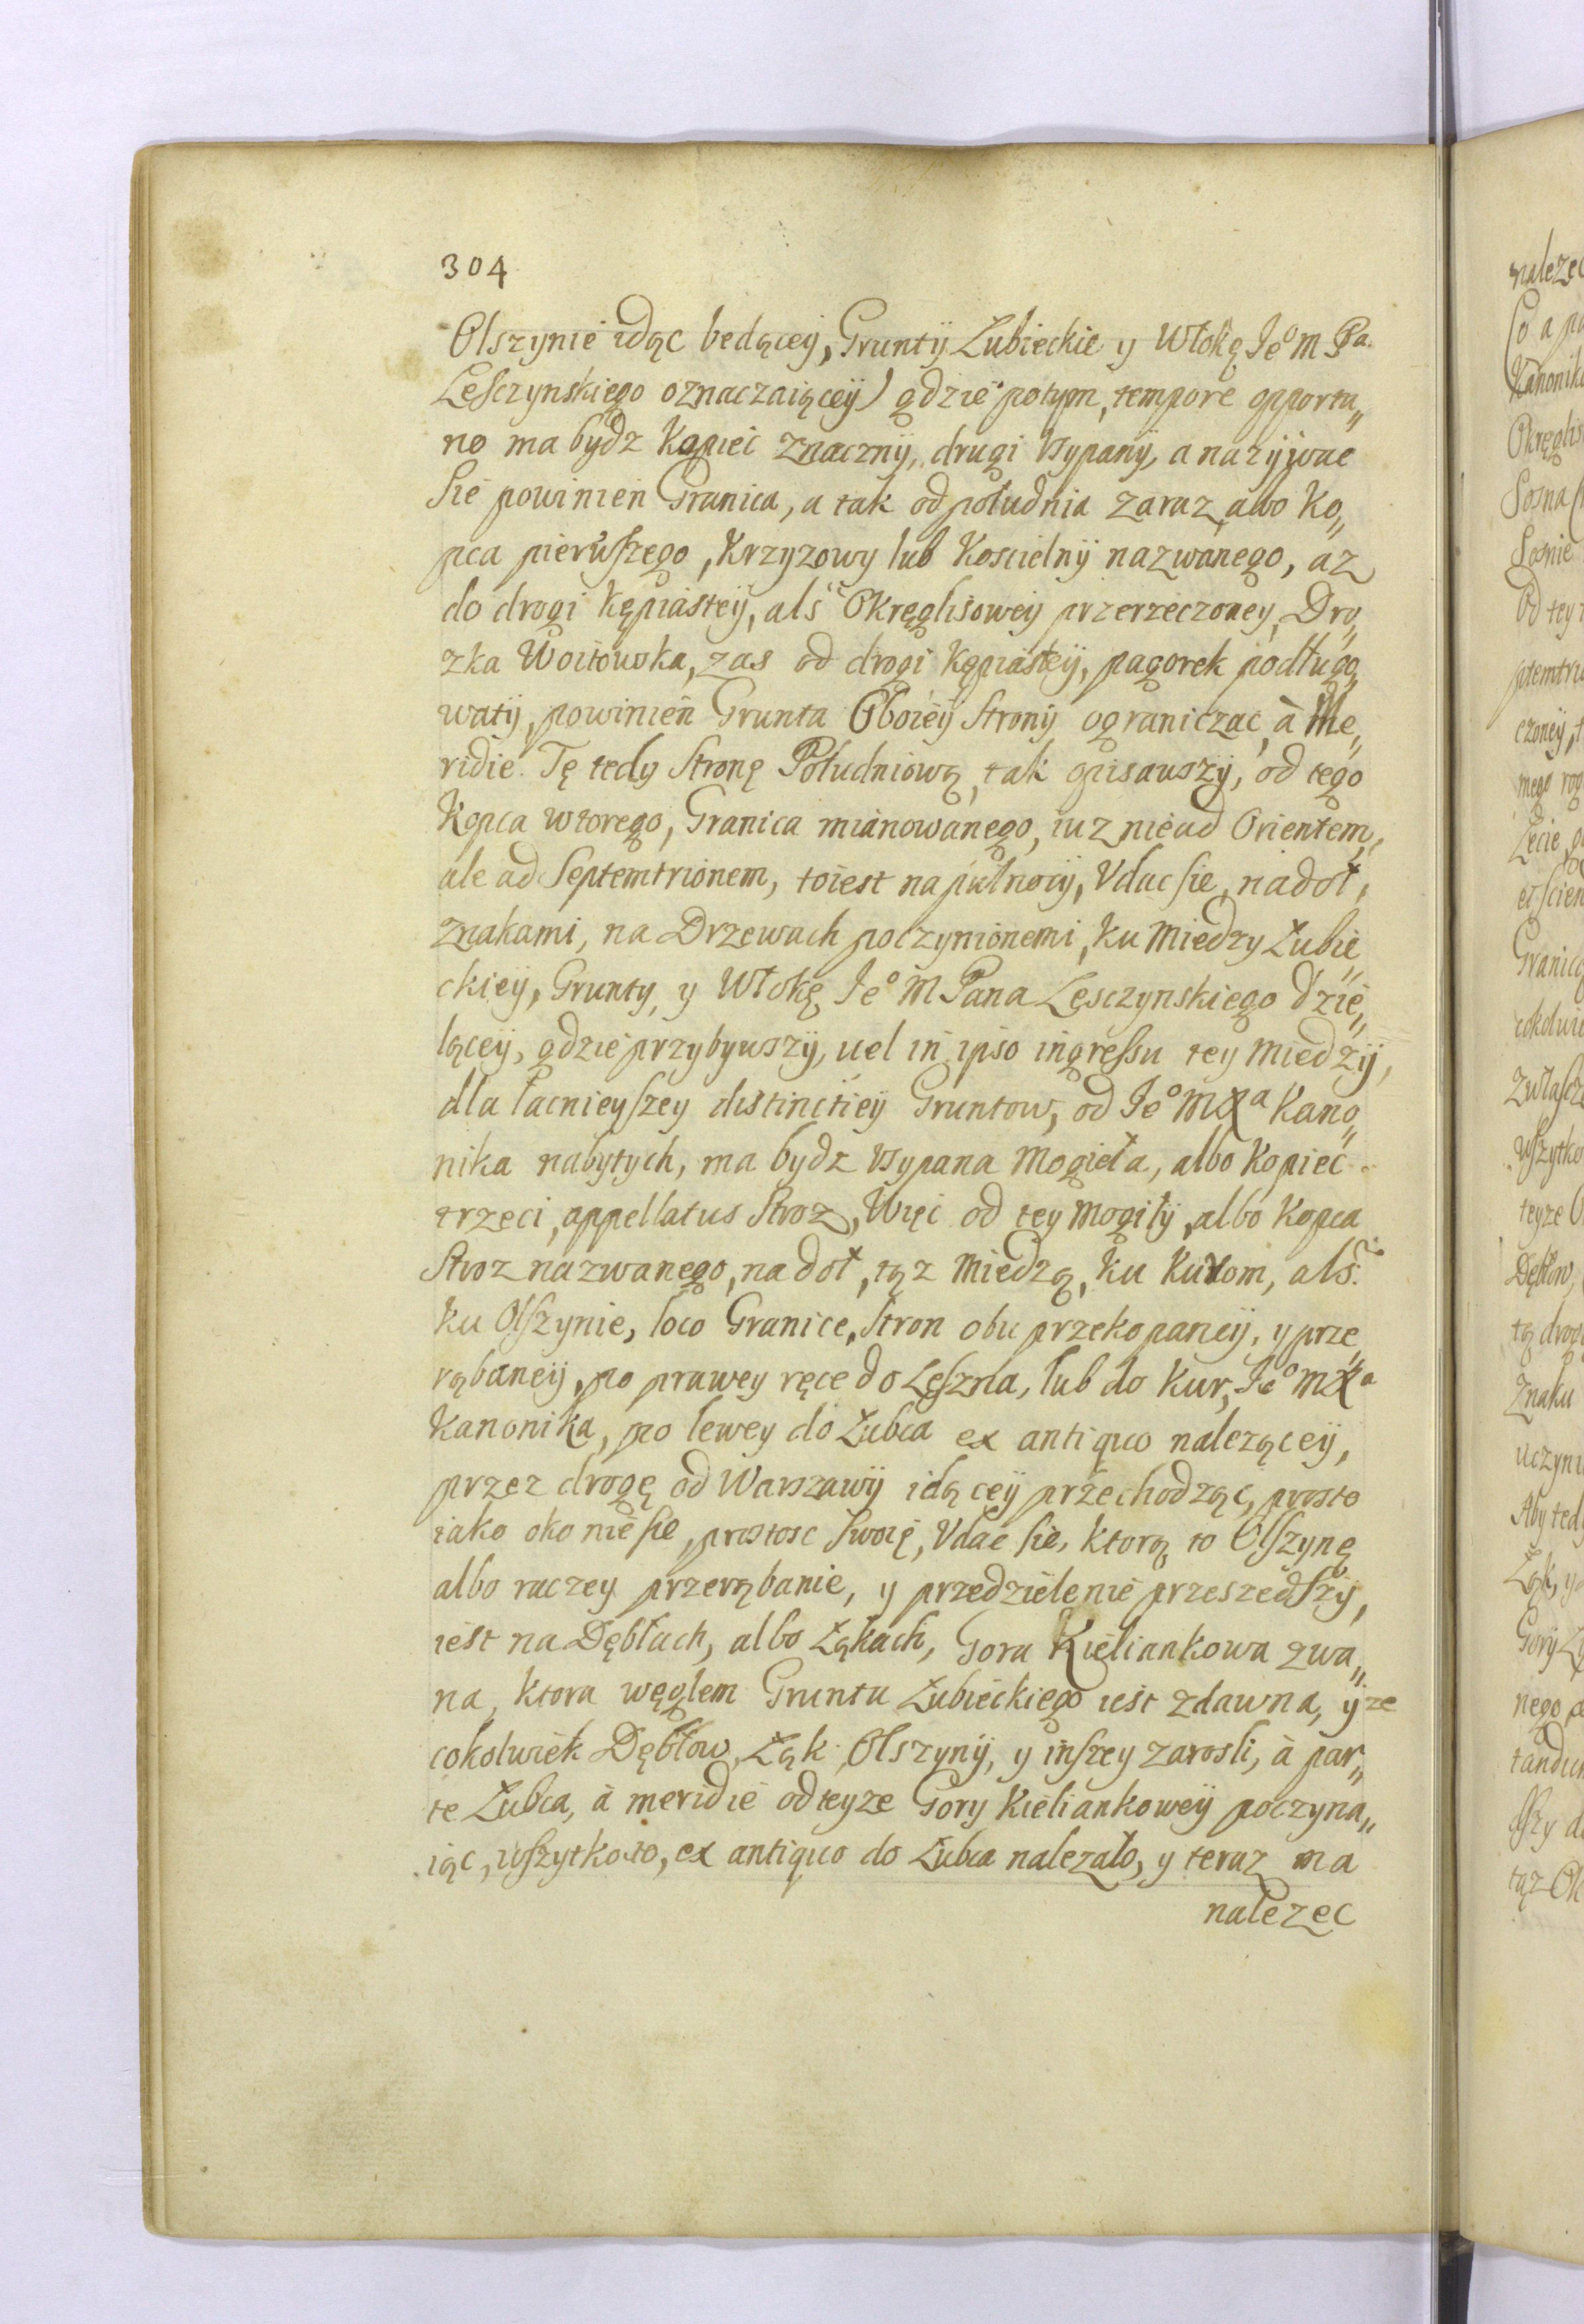 304
Olszynie idąc bedącey, Grunty Łubieckie y Włokę Je° M Pa.
Lesczynskiego oznaczaiącey) gdzie potym, tempore opportu„
no ma bydz Kopiec znaczny, drugi Vsypany, a nazywac
Sie powinien Granica, a tak od południa zaraz, abo Ko„
pca pierwszego, Krzyzowy lub Koscielny nazwanego, az
do drogi Kępiastey, als Okręglisowey przerzeczoney, Dro„
zka Woitowska, zas od drogi Kępiastey, pagorek podługo„
waty, powinien Grunta Oboiey Strony ograniczac, à Me„
ridie. Tę tedy Stronę Południową, tak opisawszy, od tego
Kopca wtorego, Granica mianowanego, iuz nie ad Orientem,
ale ad Septemtrionem, toiest na pułnocy, Vdac sie, nadoł,
znakami, na Drzewach poczynionemi, ku Miedzy Łubie„
ckiey, Grunty, y Włokę Je° M Pana Lesczynskiego dzie„
lącey, gdzie przybywszy, uel in ipso ingressu tey Miedzy,
dla łacnieyszey distinctiey Gruntow, od Je° MXa Kano„
nika nabytych, ma bydz Vsypana Mogieła, albo Kopiec
trzeci, appellatus Stroz, Więc od tey Mogiły, albo Kopca
Stroz nazwanego, na doł, tąz Miedzą, ku Kurom, als:
ku Olszynie, loco Granice, Stron obu przekopaney, y prze„
rąbaney, po prawey ręce do Leszna, lub do Kur, Je° MXa
Kanonika, po lewey do Łubca ex antiquo nalezącey,
przez drogę od Warszawy idącey przechodząc, prosto
iako oko niesie, prostosc Swoię, Vdac sie, ktorą to Olszynę
albo raczey przerąbanie, y przedzielenie przeszedszy,
iest na Dębłach, albo Łąkach, Gora Kieliankowa zwa„
na, ktora węglem Gruntu Łubieckiego iest zdawna, y ze
cokolwiek Dębłow, Łąk, Olszyny, y inszey zarosli, à par„
te Łubca, à meridie od teyze Gory Kieliankowey poczyna„
iąc, wszytko to, ex antiquo do Łubca nalezało, y teraz ma
nalezec